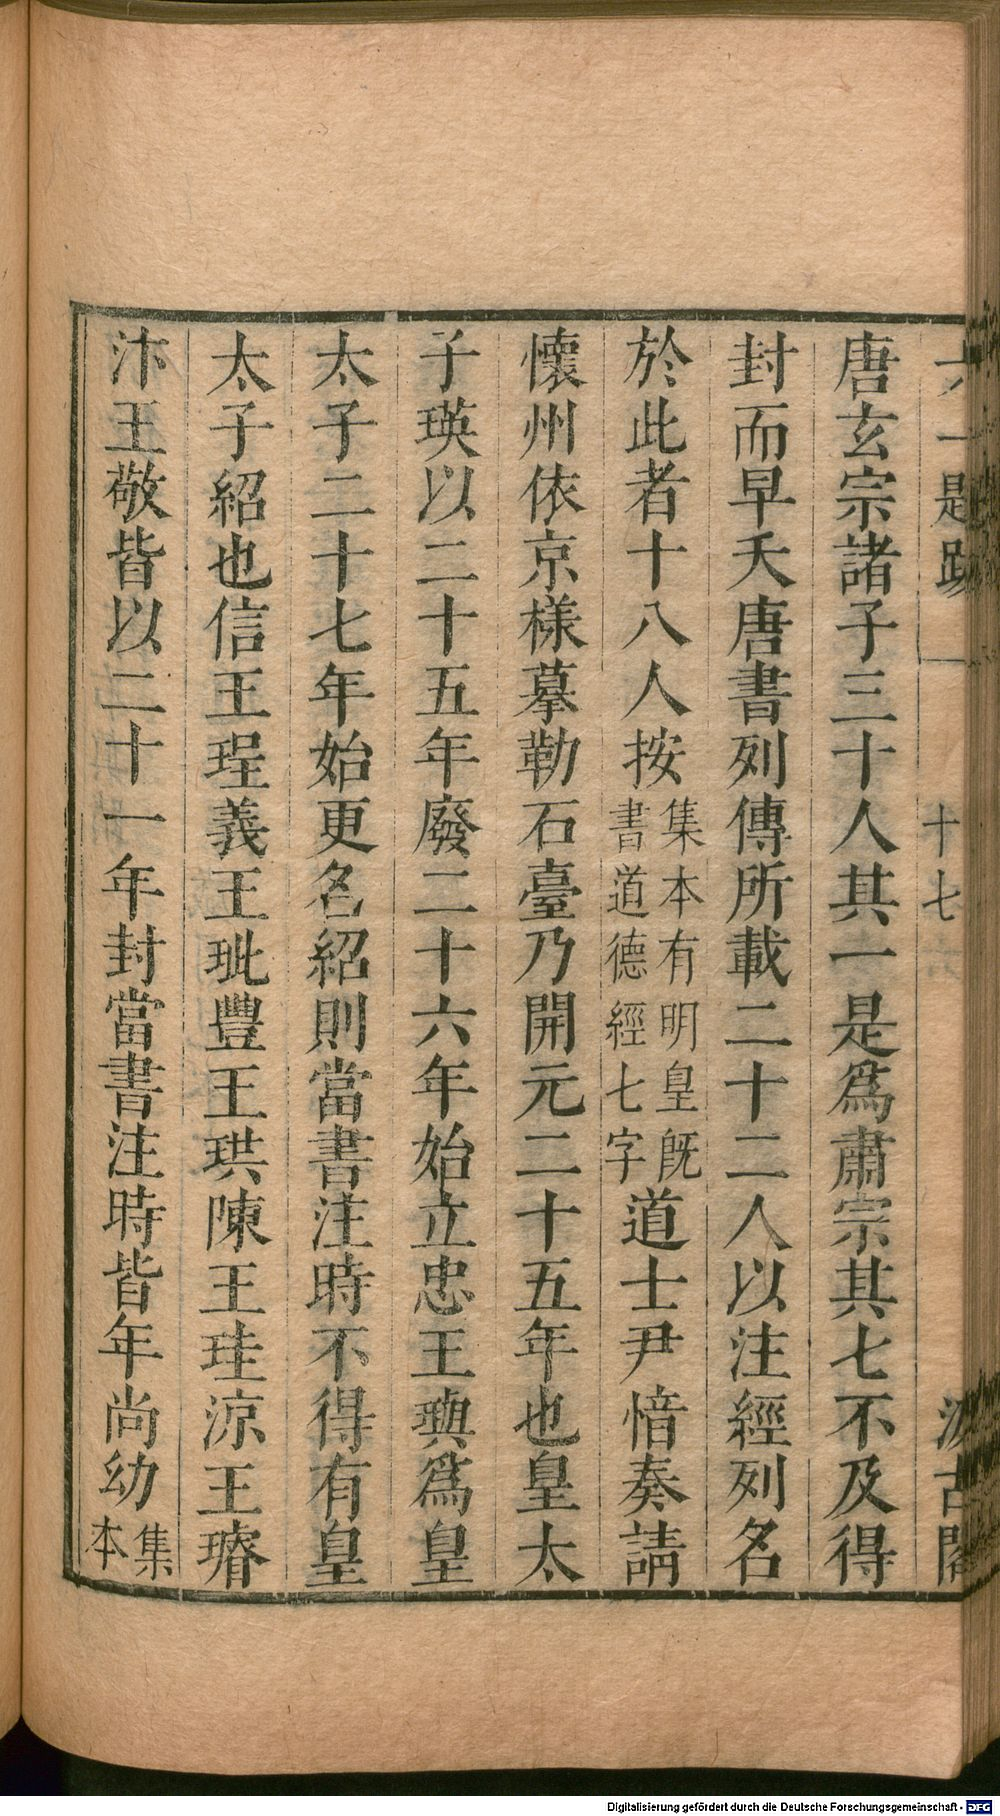 六一題跋 十七 汲古閣
唐玄宗諸子三十人其一是爲肅宗其七不及得
封而早夭唐書列傳所載二十二人以注經列名
於此者十八人按集本有明皇旣書道德經七字道士尹愔奏請
懷州依京樣摹勒石臺乃開元二十五年也皇太
子瑛以二十五年廢二十六年始立忠王璵爲皇
太子二十七年始更名紹則當書注時不得有皇
太子紹也信王瑝義王玼豐王珙陳王珪涼王璿
汴王敬皆以二十一年封當書注時皆年尚幼集本
Digitalisierung gefördert durch die Deutsche Forschungsgemeinschaft - DFG